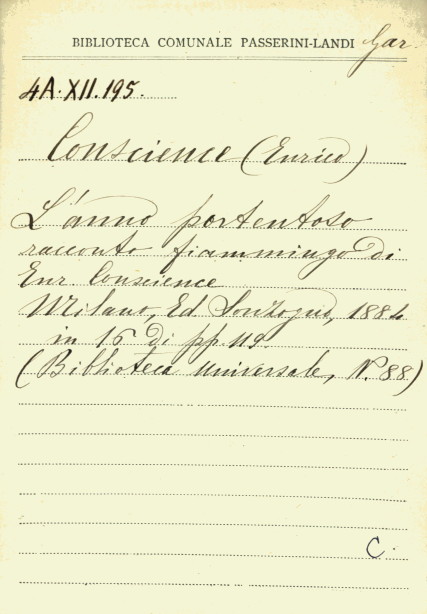 BIBLIOTECA COMUNALE PASSERINI-LANDI Gar.
4A.XII.195.
Conscience (Enrico)
L'anno portentoso
racconto fiammingo di
Enr Conscience
Milano, Ed Sonzogno, 1884
in 16 di pp. 119.
(Biblioteca universale, N. 88)
C.